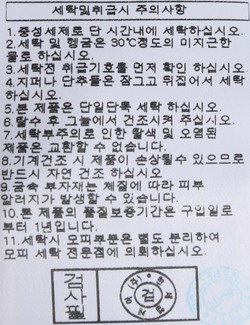 세탁및취급시 주의사항
1.중성세제로 단 시간내에 세탁하십시오.
2.세탁 및 헹굼은 30℃정도의 미지근한
물로 하십시오.
3.세탁전 취급기호를 먼저 확인 하십시오
4.지퍼나 단추들은 잠그고 뒤집어서 세탁
하십시오.
5.본 제품은 단일단독 세탁 하십시오.
6.탈수 후 그늘에서 건조시켜 주십시오.
7.세탁부주의로 인한 탈색 및 오염된
제품은 교환할 수 없습니다.
8.기계건조 시 제품이 손상될수 있으므로
반드시 자연 건조 하십시오
9.금속 부자재는 체질에 따라 피부
알러지가 발생할 수 있습니다.
10.본 제품의 품질보증기간은 구입일로
부터 1년입니다.
11.세탁시 모피부분은 별도 분리하여
모피 세탁 전문점에 의뢰하십시오.
검사필
검